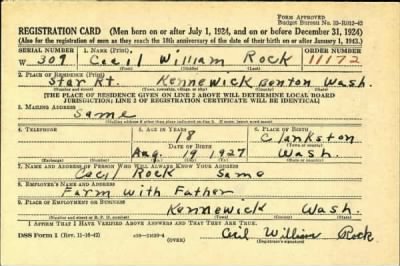 FORM APPROVED
Budget Bureau No. 33-R012-42
REGISTRATION CARD (Men born on or after July 1, 1924, and on or before December 31, 1924)
(Also for the registration of men as they reach the 18th anniversary of the date of their birth on or after January 1, 1943.)
SERIAL NUMBER 1. NAME (Print) ORDER NUMBER
W 309 Cecil William Rock 11172
2. PLACE OF RESIDENCE (Print)
Star Rt. Kennewick Benton Wash.
(Number and street) (Town, township, village, or city) (County) (State)
[THE PLACE OF RESIDENCE GIVEN ON LINE 2 ABOVE WILL DETERMINE LOCAL BOARD
JURISDICTION; LINE 2 OF REGISTRATION CERTIFICATE WILL BE IDENTICAL]
3. MAILING ADDRESS
Same
4. TELEPHONE 5. AGE IN YEARS 6. PLACE OF BIRTH
18 Clarkston
DATE OF BIRTH (Town or county)
Aug. 19 1927 Wash.
(Exchange) (Number) (Mo.) (Day) (Yr.) (State or country)
7. NAME AND ADDRESS OF PERSON WHO WILL ALWAYS KNOW YOUR ADDRESS
Cecil Rock Same
8. EMPLOYER'S NAME AND ADDRESS
Farm with Father
9. PLACE OF EMPLOYMENT OR BUSINESS
Kennewick Wash.
(Number and street or R. F. D. number) (Town) (County) (State)
I AFFIRM THAT I HAVE VERIFIED ABOVE ANSWERS AND THAT THEY ARE TRUE.
DSS Form 1 (Rev. 11-16-42) (OVER) Cecil William Rock
(Registrant's signature)